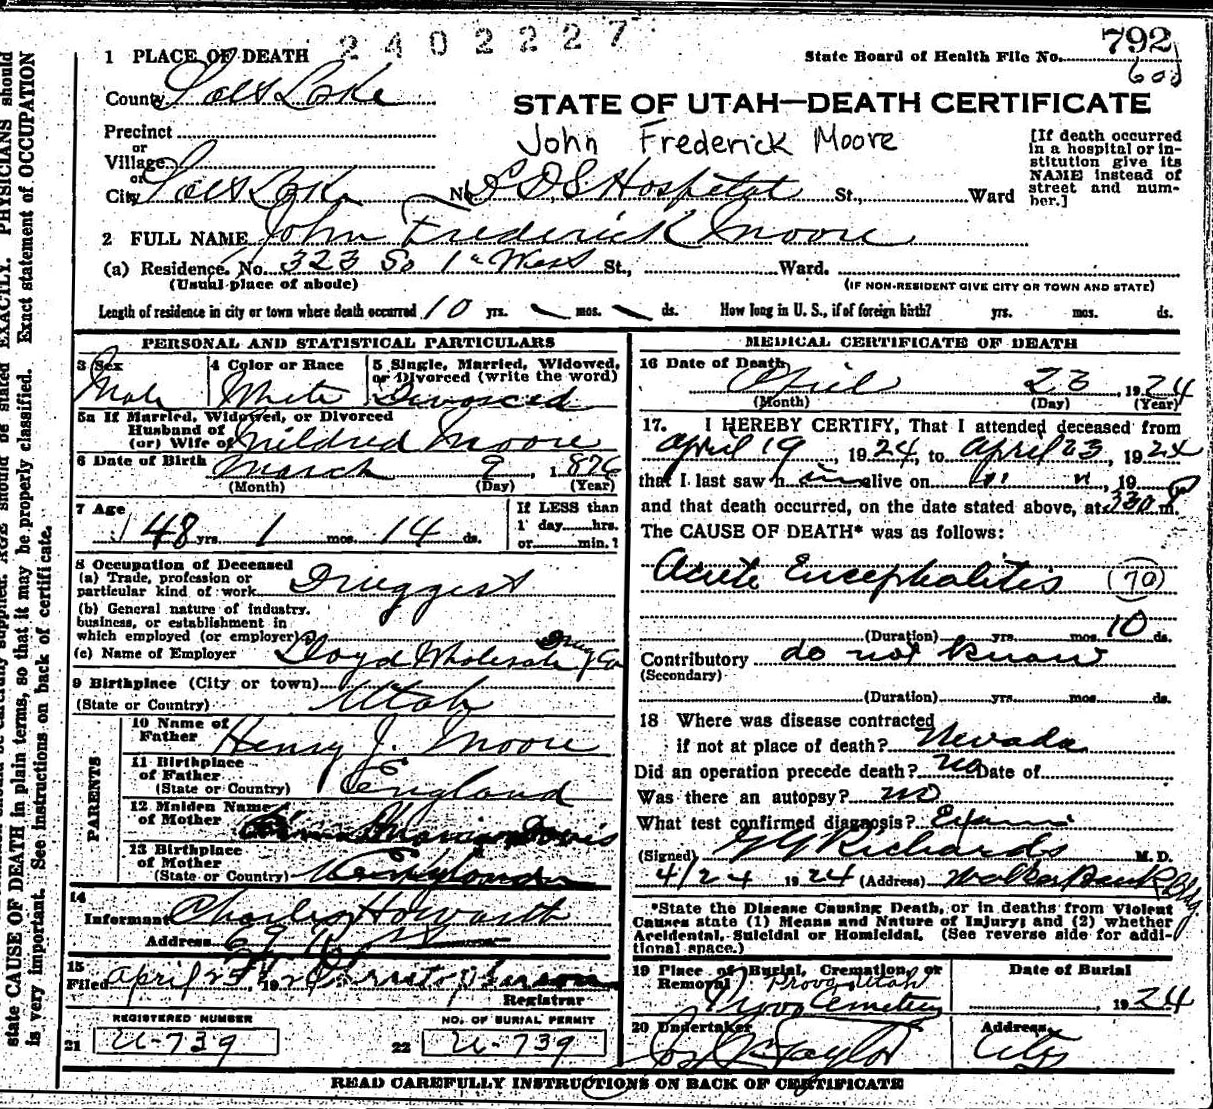 2402227
792
1 PLACE OF DEATH
State Board of Health File No.
County Salt Lake
STATE OF UTAH—DEATH CERTIFICATE
Precinct
John Frederick Moore
or
Village
or
City Salt Lake No. L D S Hospital St., Ward
[If death occurred
in a hospital or in-
stitution give its
NAME instead of
street and num-
ber.]
2 FULL NAME John Frederick Moore
(a) Residence. No. 323 So 1st West St., Ward.
(Usual place of abode)
(IF NON-RESIDENT GIVE CITY OR TOWN AND STATE)
Length of residence in city or town where death occurred 10 yrs. mos. ds. How long in U. S., if of foreign birth? yrs. mos. ds.
PERSONAL AND STATISTICAL PARTICULARS
3 Sex
Male
4 Color or Race
White
5 Single, Married, Widowed,
or Divorced (write the word)
Divorced
5a If Married, Widowed, or Divorced
Husband of
(or) Wife of Mildred Moore
6 Date of Birth March 9, 1876
(Month) (Day) (Year)
7 Age
48 yrs. 1 mos. 14 ds.
If LESS than
1 day hrs.
or min.?
8 Occupation of Deceased
(a) Trade, profession or
particular kind of work Druggist
(b) General nature of industry.
business, or establishment in
which employed (or employer)
(c) Name of Employer Lloyd Wholesale Drug Co
9 Birthplace (City or town)
(State or Country) Utah
PARENTS
10 Name of
Father Henry J. Moore
11 Birthplace
of Father
(State or Country) England
12 Maiden Name
of Mother Davis
13 Birthplace
of Mother
(State or Country)
14
Informant Charles Howarth
Address
15
Filed April 25
Registrar
REGISTERED NUMBER
21 U-739
NO. OF BURIAL PERMIT
22 U-739
MEDICAL CERTIFICATE OF DEATH
16 Date of Death
April 23, 1924
(Month) (Day) (Year)
17. I HEREBY CERTIFY, That I attended deceased from
April 19, 1924, to April 23, 1924
that I last saw him alive on " ", 19
and that death occurred, on the date stated above, at 330 P m.
The CAUSE OF DEATH* was as follows:
Acute Encephalitis (70)
(Duration) yrs. mos. 10 ds.
Contributory do not know
(Secondary)
(Duration) yrs. mos. ds.
18 Where was disease contracted
if not at place of death? Nevada
Did an operation precede death? no Date of
Was there an autopsy? no
What test confirmed diagnosis?
(Signed) G G Richards M. D.
4/24 1924 (Address) Walker Bank Bldg
*State the Disease Causing Death, or in deaths from Violent
Causes state (1) Means and Nature of Injury; and (2) whether
Accidental, Suicidal or Homicidal. (See reverse side for addi-
tional space.)
19 Place of Burial, Cremation, or
Removal Provo Utah
Provo Cemetery
Date of Burial
1924
20 Undertaker
Taylor
Address
City
READ CAREFULLY INSTRUCTIONS ON BACK OF CERTIFICATE
AGE should be stated EXACLY. PHYSICIANS should
state CAUSE OF DEATH in plain terms, so that it may be properly classified. Exact statement of OCCUPATION
is very important. See instructions on back of certificate.